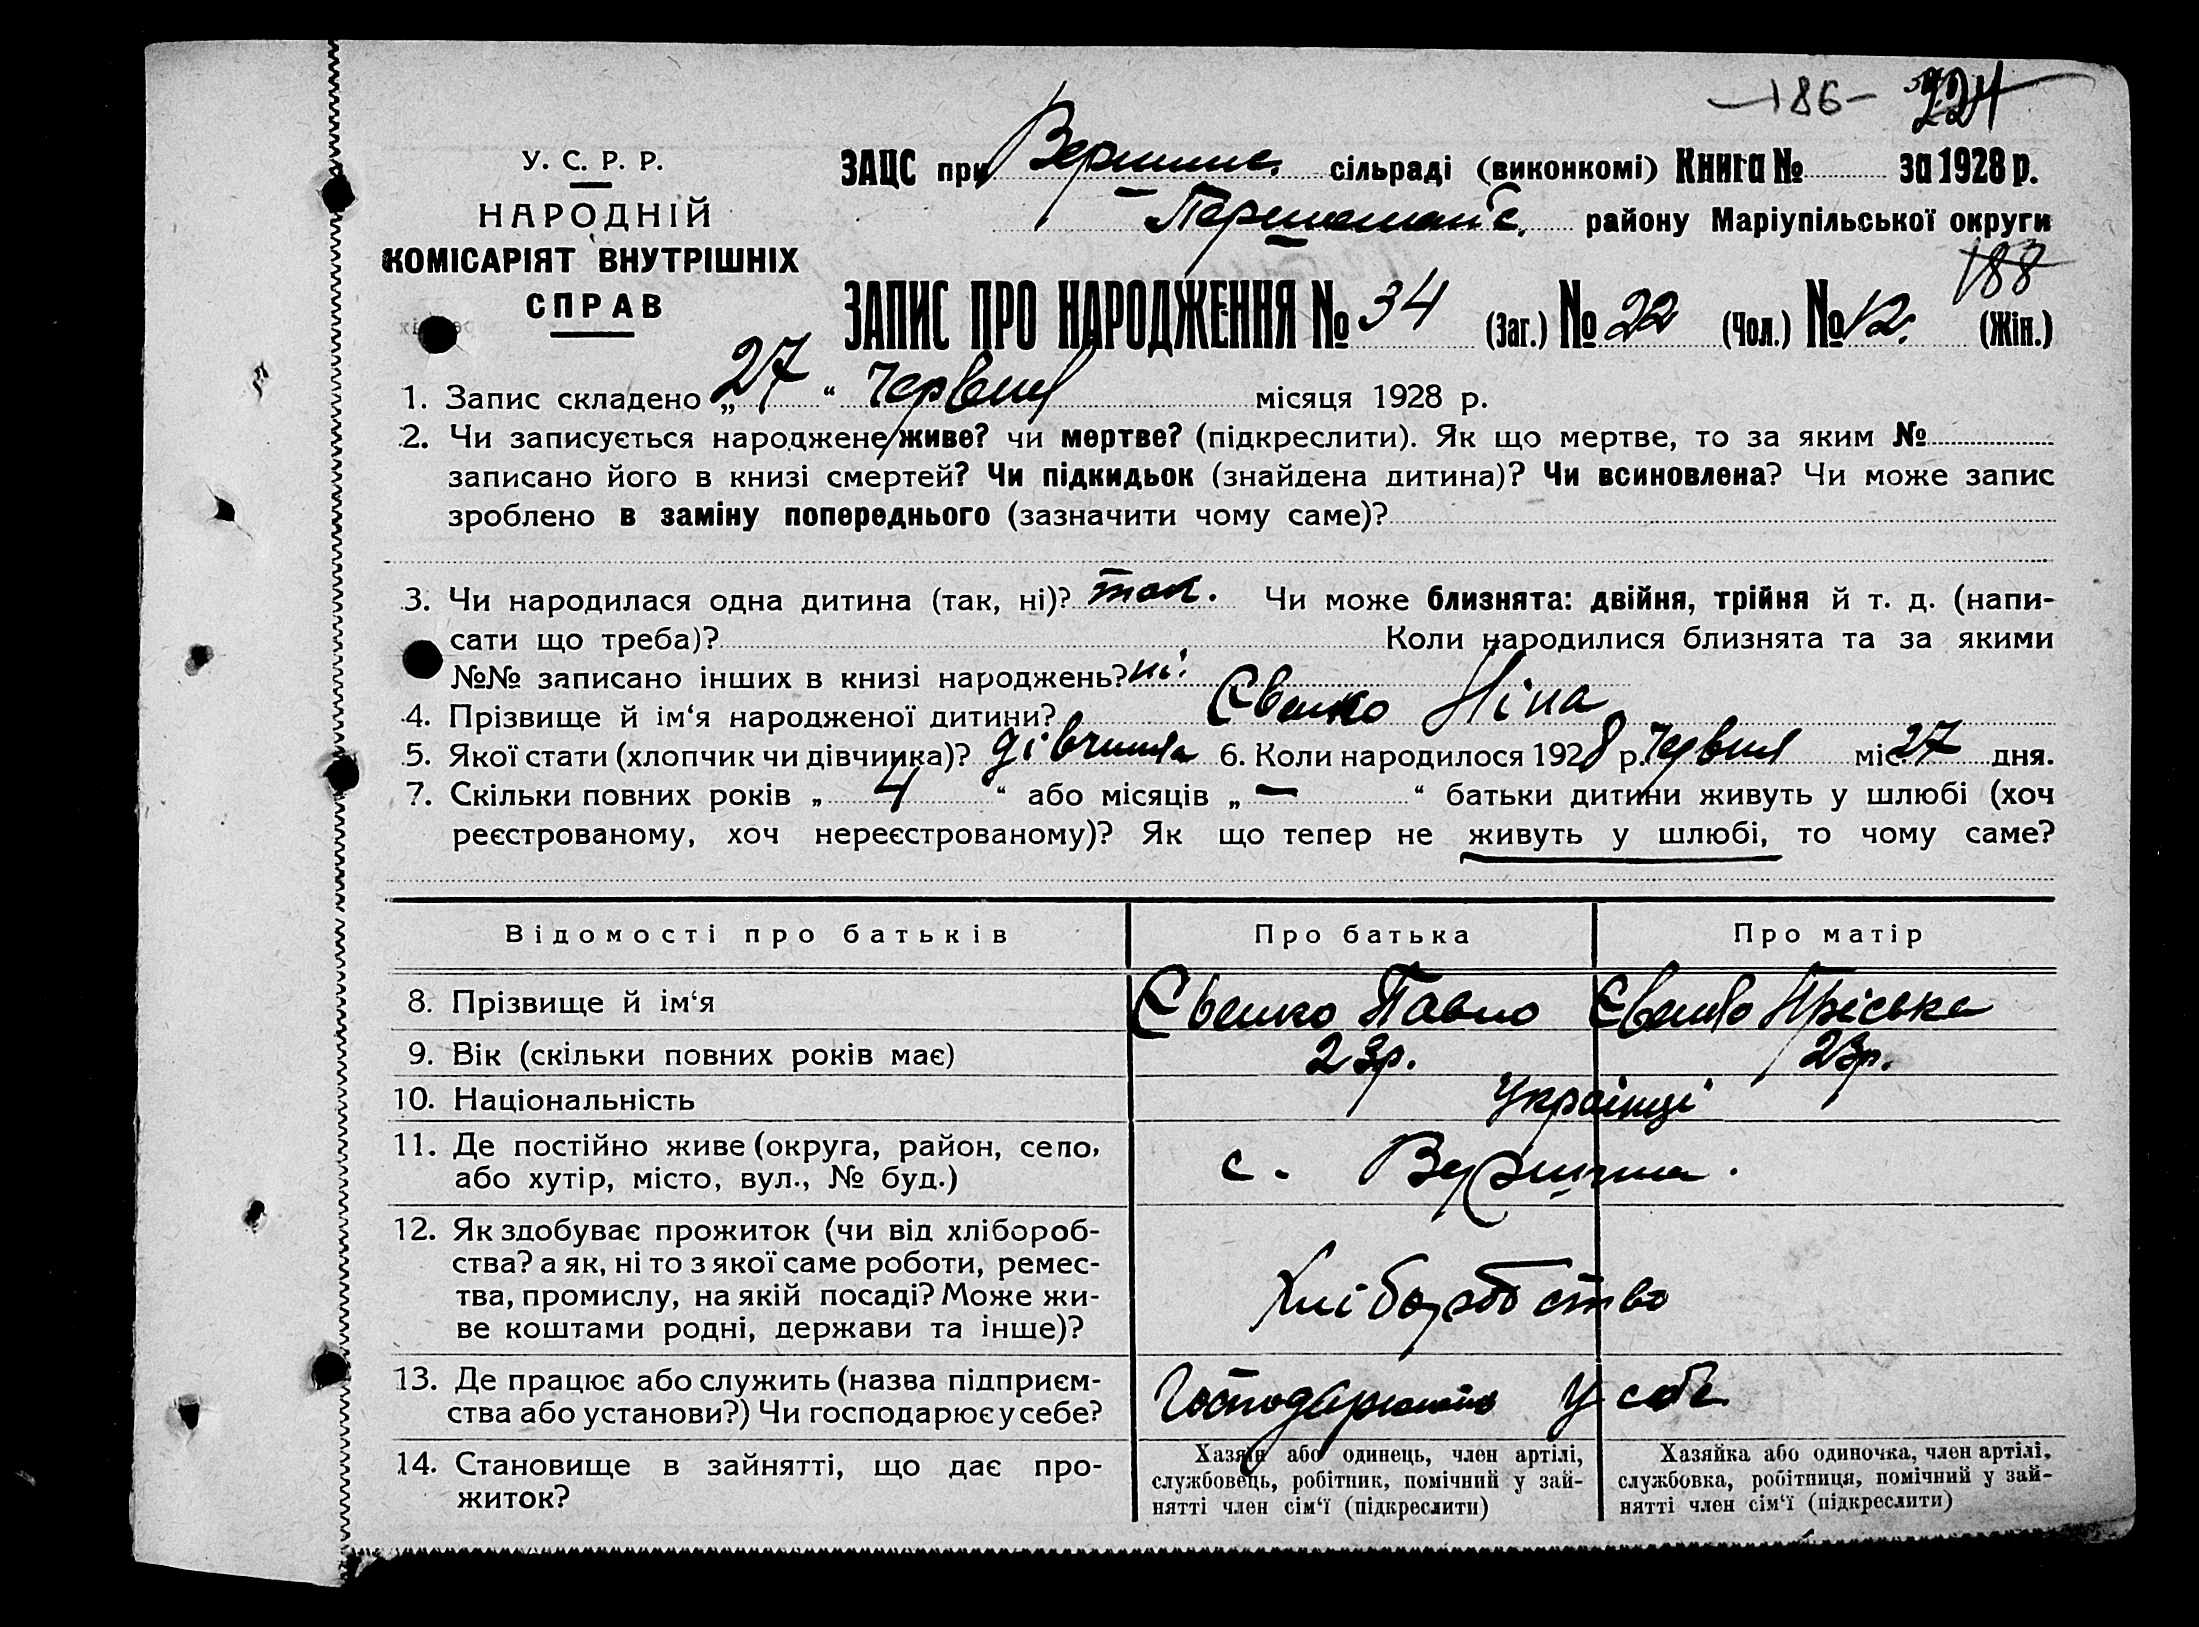 -186- 224
У. С. Р. Р.
НАРОДНІЙ
КОМІСАРІЯТ ВНУТРІШНІХ
СПРАВ
ЗАЦС при Вершинс. сільраді (виконкомі) Книга № за 1928 р.
Першотравн. району Маріупільської округи
188
ЗАПИС ПРО НАРОДЖЕННЯ № 34 (Заг.) № 22 (Чол.) № 12. (Жін.)
1. Запис складено „27“ червня місяця 1928 р.
2. Чи записується народжене живе? чи мертве? (підкреслити). Як що мертве, то за яким №
записано його в книзі смертей? Чи підкидьок (знайдена дитина)? Чи всиновлена? Чи може запис
зроблено в заміну попереднього (зазначити чому саме)?
3. Чи народилася одна дитина (так, ні)? так. Чи може близнята: двійня, трійня й т. д. (напи-
сати що треба)? Коли народилися близнята та за якими
№№ записано інших в книзі народжень? ні.
4. Прізвище й ім‘я народженої дитини? Євенко Ніна
5. Якої стати (хлопчик чи дівчинка)? дівчинка 6. Коли народилося 1928 р. червня міс. 27 дня.
7. Скільки повних років „4“ або місяців „—“ батьки дитини живуть у шлюбі (хоч
реєстрованому, хоч нереєстрованому)? Як що тепер не живуть у шлюбі, то чому саме?
Відомості про батьків Про батька Про матір
8. Прізвище й ім‘я Євенко Павло Євенко Пріська
9. Вік (скільки повних років має) 23р. 23р.
10. Національність Українці
11. Де постійно живе (округа, район, село,
або хутір, місто, вул., № буд.) с. Вершина.
12. Як здобуває прожиток (чи від хлібороб-
ства? а як, ні то з якої саме роботи, ремес-
тва, промислу, на якій посаді? Може жи-
ве коштами родні, держави та інше)? Хліборобство
13. Де працює або служить (назва підприєм-
ства або установи?) Чи господарює у себе? Господарюють у себе
14. Становище в зайнятті, що дає про-
житок?
Хазяїн або одинець, член артілі,
службовець, робітник, помічний у зай-
нятті член сім‘ї (підкреслити)
Хазяйка або одиночка, член артілі,
службовка, робітниця, помічний у зай-
нятті член сім‘ї (підкреслити)